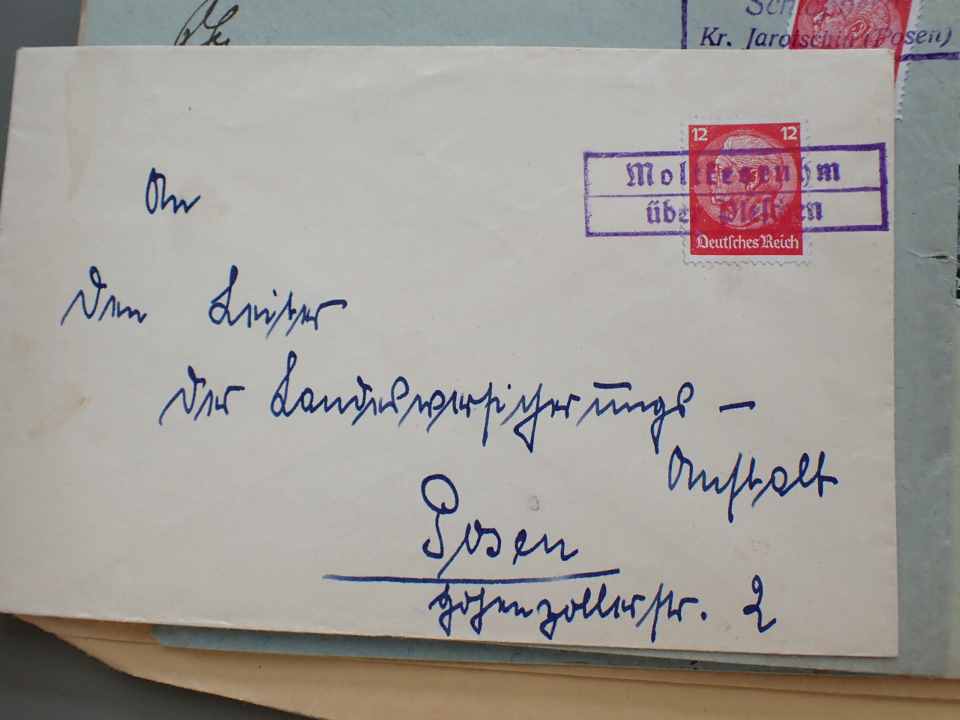 Kr. Jarotschin (Posen)
12 12
Moltkesruhm
über Pleschen
Deutsches Reich
An
den Leiter
der Landesversicherungs-
Anstalt
Posen
Hohenzollerstr. 2